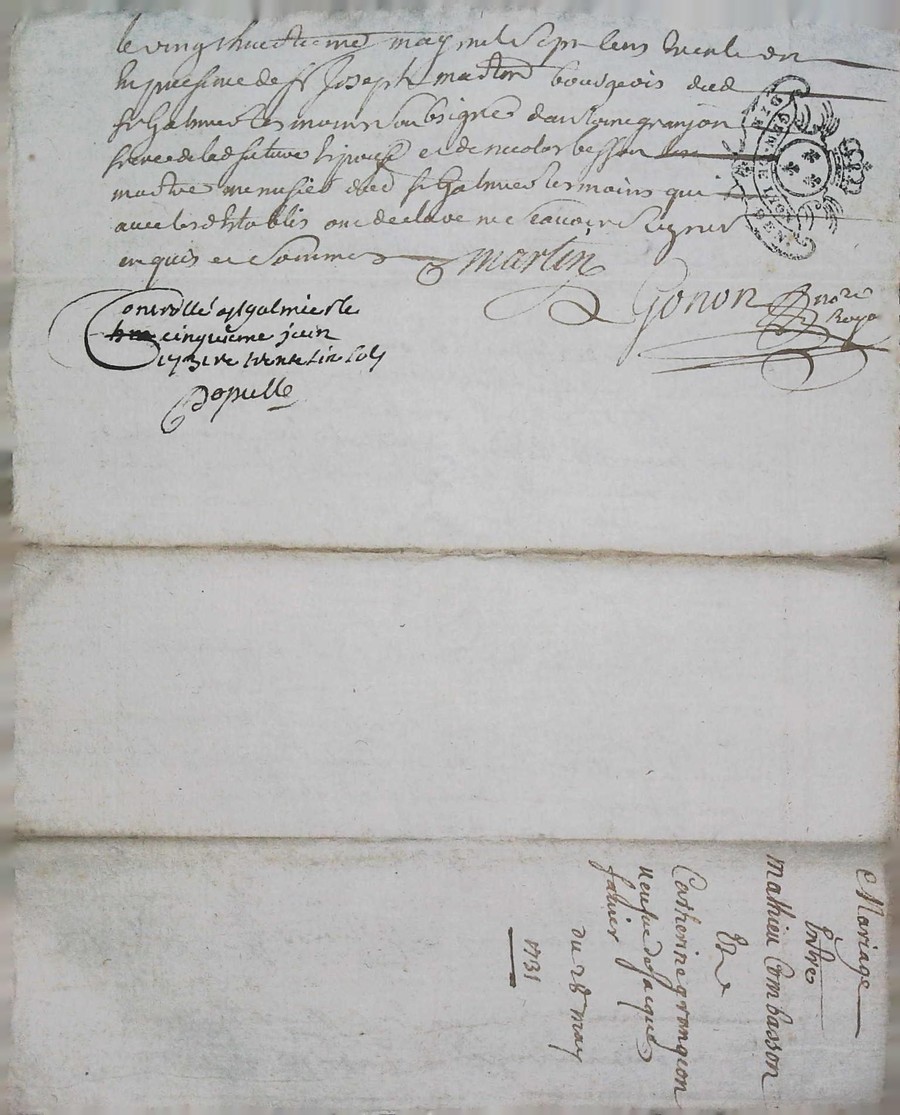 le vingt huictieme may mil sept cens trente un
en presence de sr Joseph martin bourgeois dud
st Galmier tesmoins soubsigné d'antoine granjon
frere de lad future epouse et de nicolas besson
maitre menusier dud st Galmier tesmoins qui
avec les establis ont declaré ne scavoir signer
enquis et sommes martin
Gonon nore Royal
GEN
Controllé a st galmier le
cinquieme juin
1731
Mariage
Entre
mathieu Combasson
Et
Catherine grangeon
veufve de Jacques
du 28 may
1731